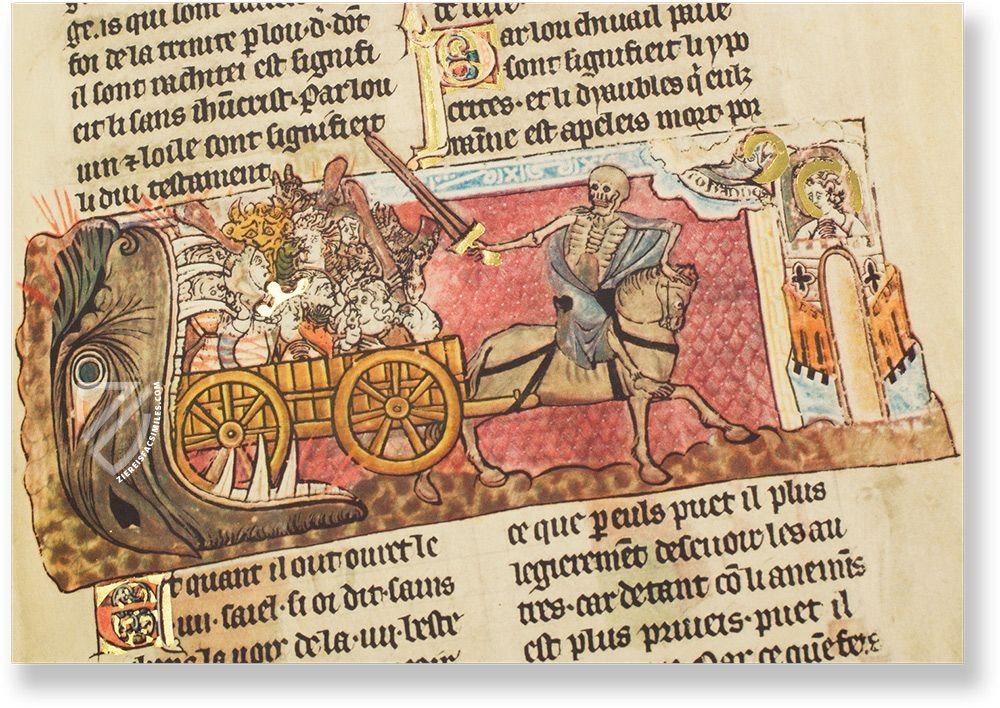 ge. is qui sont
foi de la trinite p lou. d. dõt
il sont rachitei est signifi
eit li sans ihũcrist. Par lou
uin ⁊ loile sont signifieit
li dui testament
Par lou chiuail palle
sont signifieit li ypo
crites. et li dyaubles q̃ culz
mainne est apeleis mort. por
IOHANNES
Et quant il out ouuert le
.iiii. saiel. si oi dit. sains
la uoix de la .iiii. beste
ce que p euls puet il plus
legieremẽt deseuoir les au
tres. car de tant cõ li anemis
est plus priueis. puet il
Par ce quẽ
ZIEREISFACSIMILES.COM